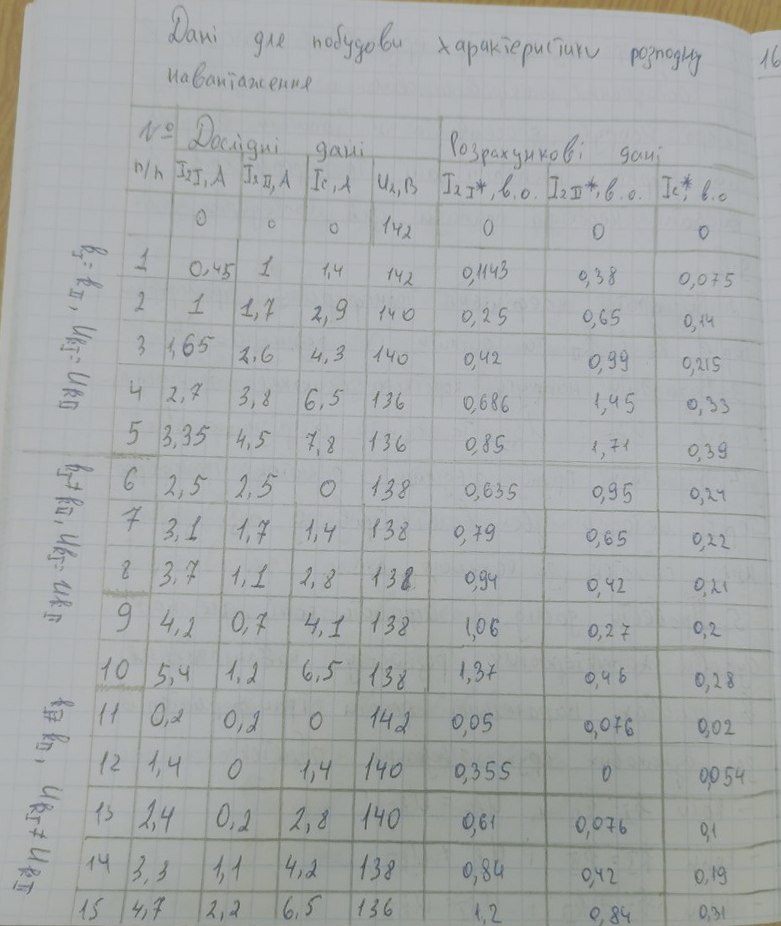 Дані для побудови характеристики розподілу
навантаження
16
№ Дослідні дані Розрахункові дані
п/п I₂I, А I₂II, А Iс, А U₂, В I₂I*, в.о. I₂II*, в.о. Iс*, в.о
0 0 0 142 0 0 0
kI = kII, UkI = UkII
1 0,45 1 1,4 142 0,1143 0,38 0,075
2 1 1,7 2,9 140 0,25 0,65 0,14
3 1,65 2,6 4,3 140 0,42 0,99 0,215
4 2,7 3,8 6,5 136 0,686 1,45 0,33
5 3,35 4,5 7,8 136 0,85 1,71 0,39
kI ≠ kII, UkI = UkII
6 2,5 2,5 0 138 0,635 0,95 0,24
7 3,1 1,7 1,4 138 0,79 0,65 0,22
8 3,7 1,1 2,8 138 0,94 0,42 0,21
9 4,2 0,7 4,1 138 1,06 0,27 0,2
10 5,4 1,2 6,5 138 1,37 0,46 0,28
kI = kII, UkI ≠ UkII
11 0,2 0,2 0 142 0,05 0,076 0,02
12 1,4 0 1,4 140 0,355 0 0,054
13 2,4 0,2 2,8 140 0,61 0,076 0,1
14 3,3 1,1 4,2 138 0,84 0,42 0,19
15 4,7 2,2 6,5 136 1,2 0,84 0,31